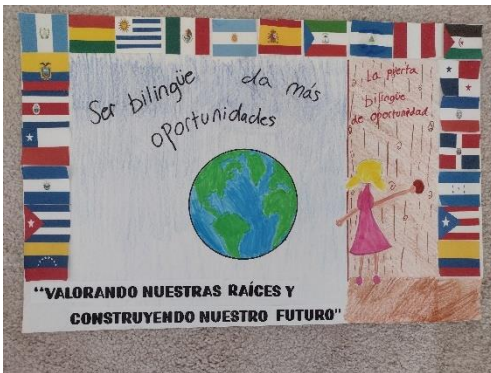 Ser bilingüe da más
oportunidades
La puerta
bilingüe
de oportunidad
“VALORANDO NUESTRAS RAÍCES Y
CONSTRUYENDO NUESTRO FUTURO"